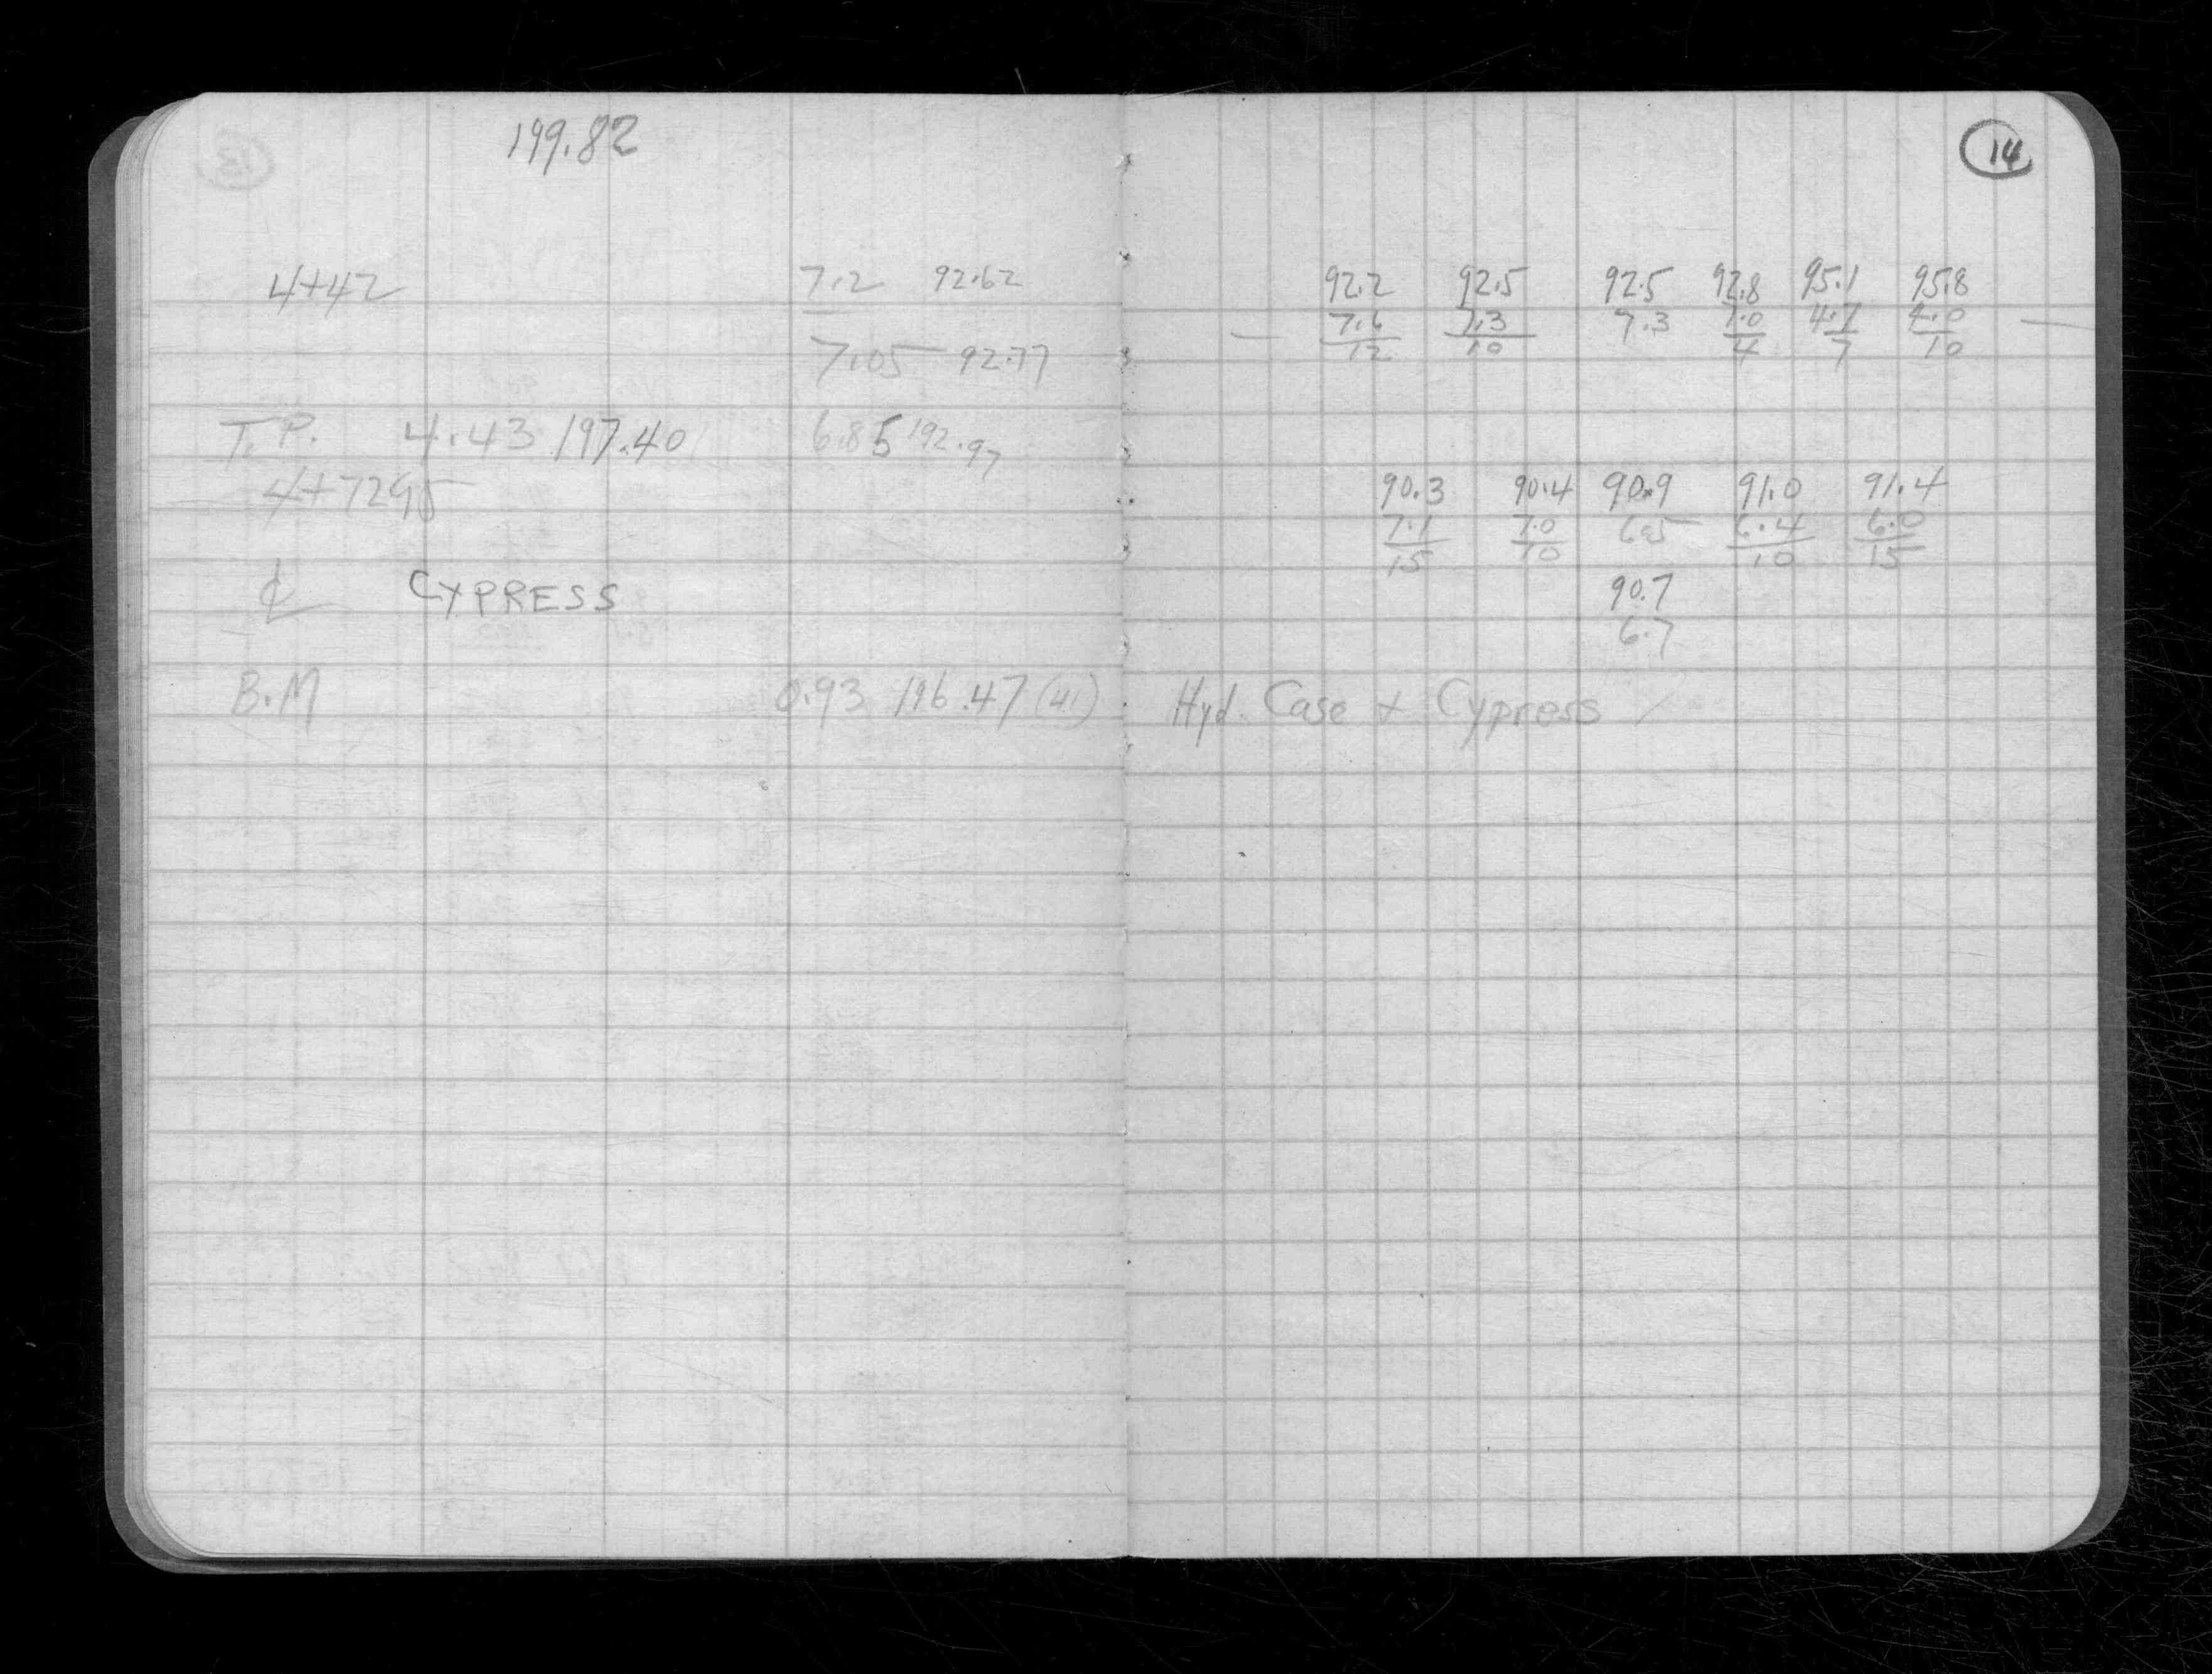 199.82
4+42 7.2 92.62
7.05 92.77
T.P. 4.43 197.40 6.85 192.97
4+7295
℄ CYPRESS
B.M 0.93 196.47 (41)
14
92.2 92.5 92.5 92.8 95.1 95.8
— 7.6 7.3 7.3 7.0 4.7 4.0 —
12 10 4 7 10
90.3 90.4 90.9 91.0 91.4
7.1 7.0 6.5 6.4 6.0
15 10 10 15
90.7
6.7
Hyd. Case + Cypress